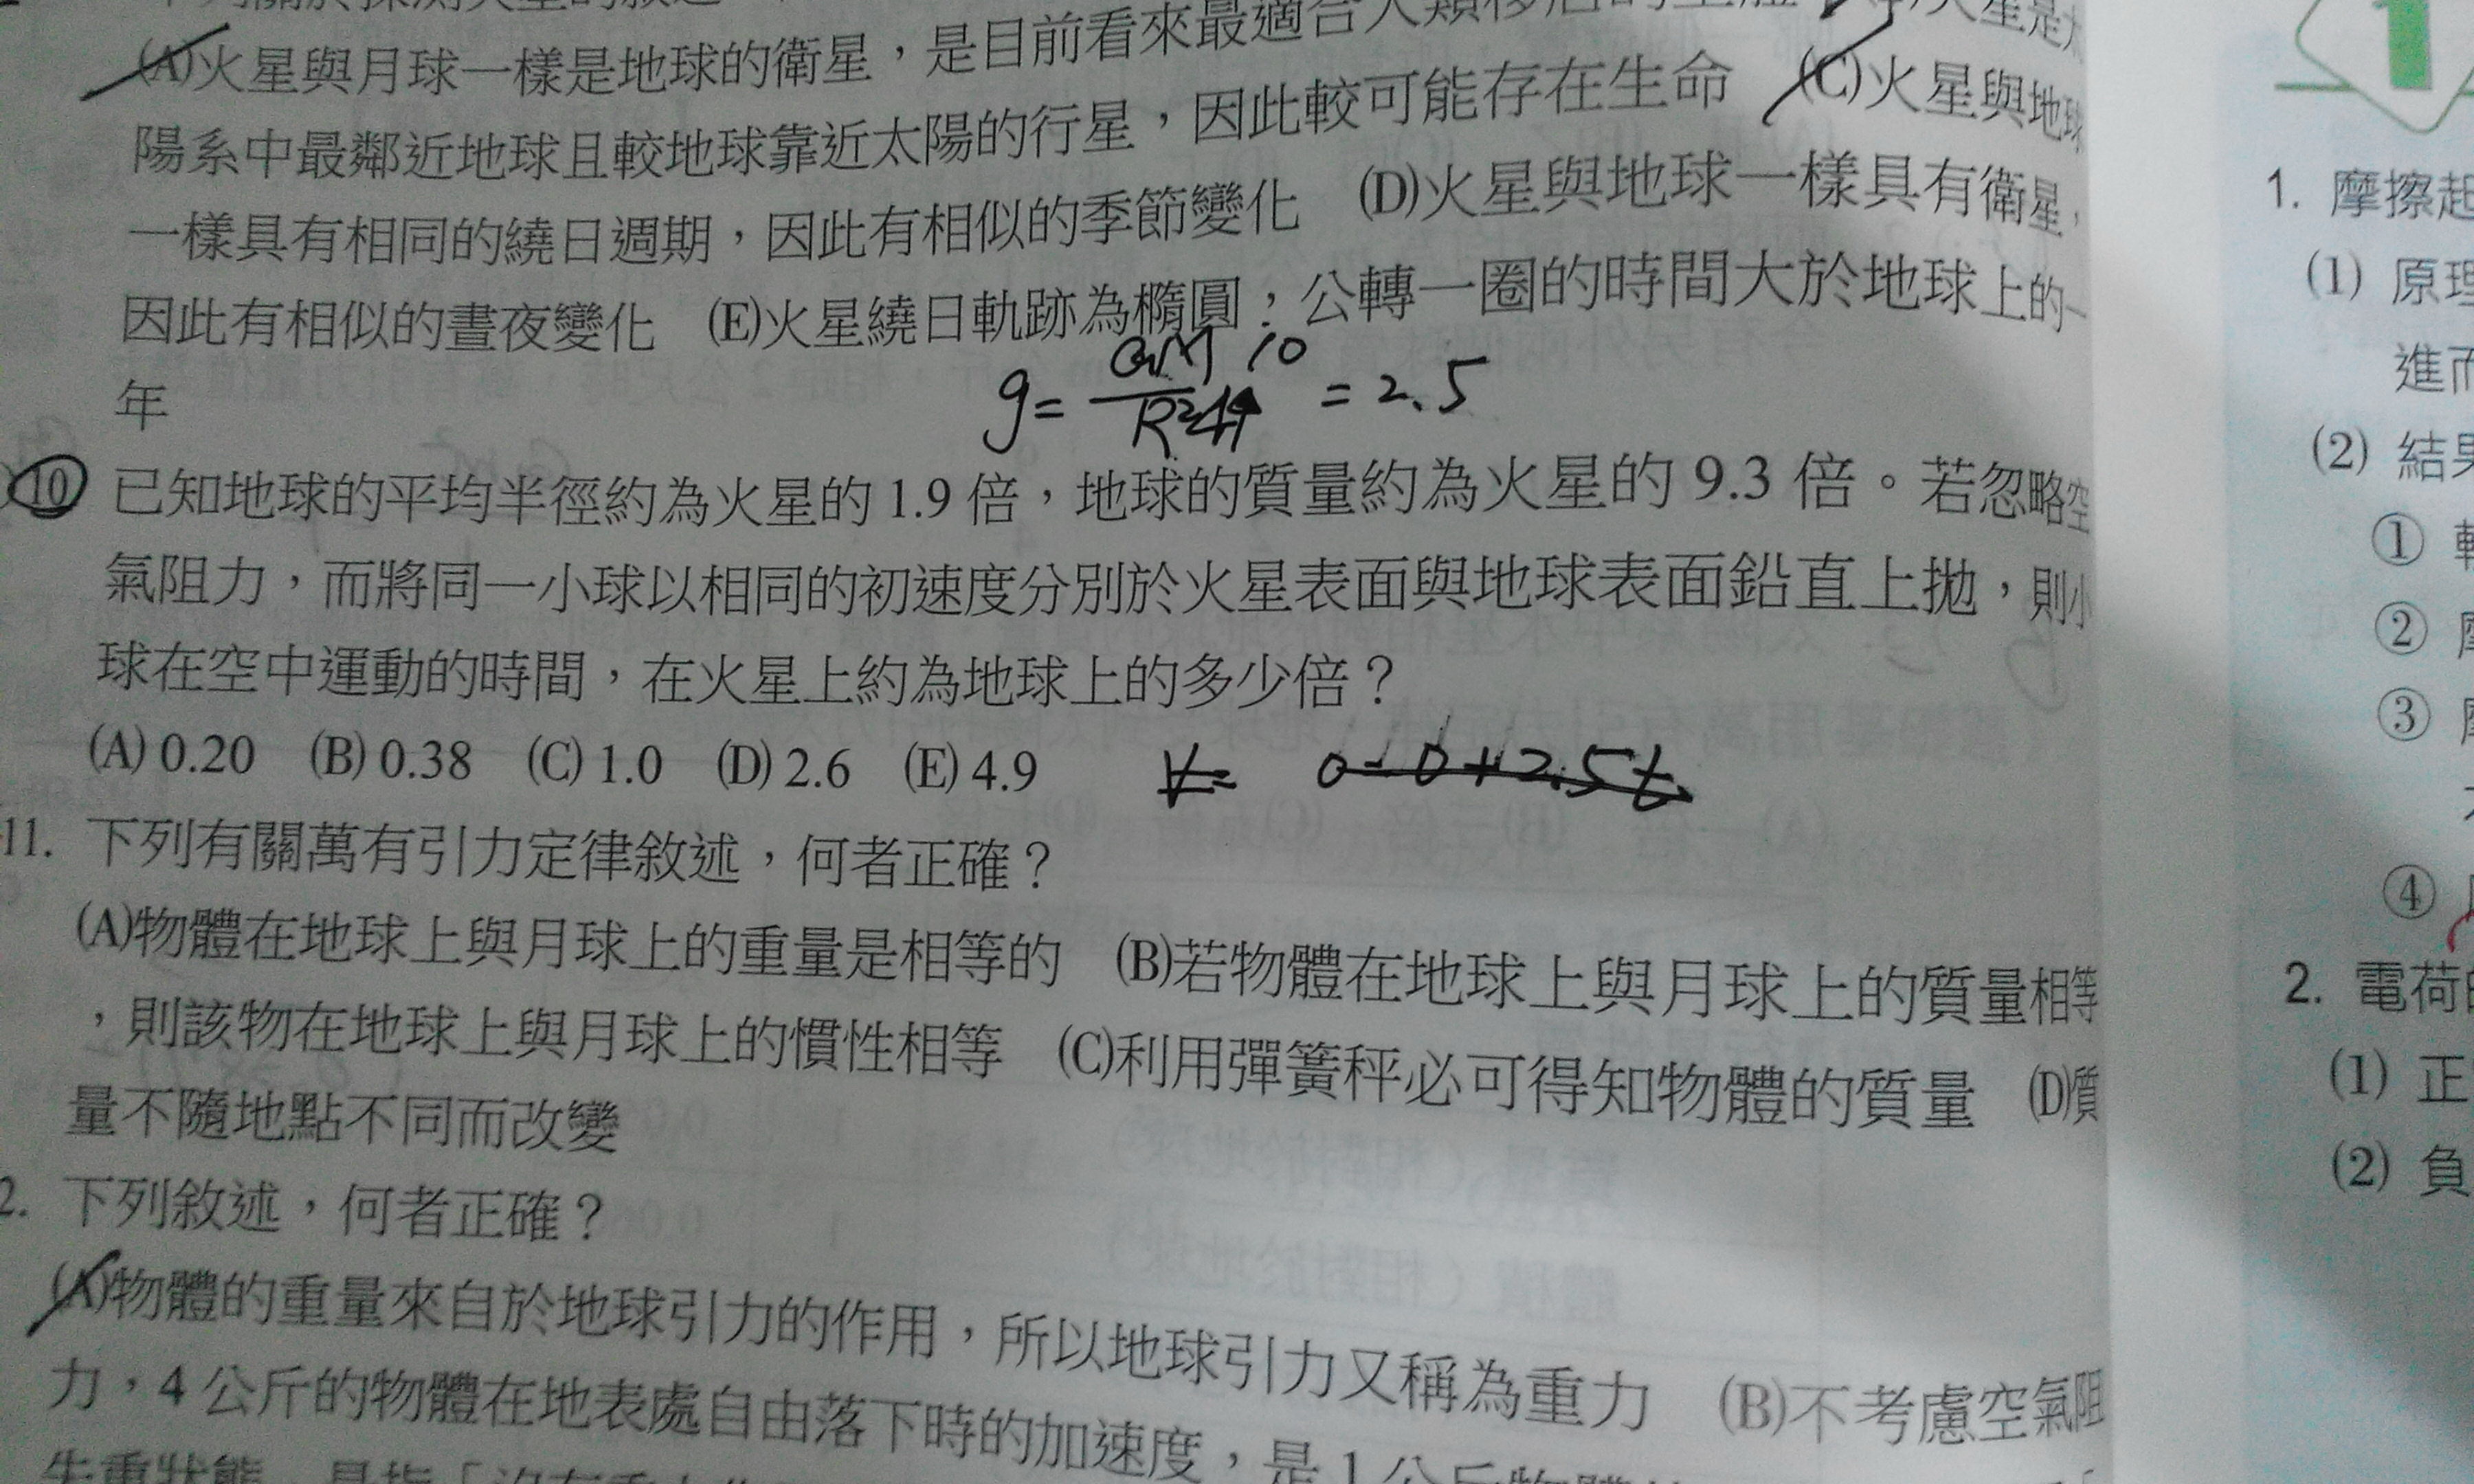 (A)火星與月球一樣是地球的衛星，是目前看來最適合人類移居的星體
陽系中最鄰近地球且較地球靠近太陽的行星，因此較可能存在生命 (C)火星與地球
一樣具有相同的繞日週期，因此有相似的季節變化 (D)火星與地球一樣具有衛星，
因此有相似的晝夜變化 (E)火星繞日軌跡為橢圓；公轉一圈的時間大於地球上的一
年
g= GM 10 / R² 4 = 2.5
10 已知地球的平均半徑約為火星的 1.9 倍，地球的質量約為火星的 9.3 倍。若忽略空
氣阻力，而將同一小球以相同的初速度分別於火星表面與地球表面鉛直上拋，則小
球在空中運動的時間，在火星上約為地球上的多少倍？
(A) 0.20 (B) 0.38 (C) 1.0 (D) 2.6 (E) 4.9
V= 0=0+2.5t
11. 下列有關萬有引力定律敘述，何者正確？
(A)物體在地球上與月球上的重量是相等的 (B)若物體在地球上與月球上的質量相等
，則該物在地球上與月球上的慣性相等 (C)利用彈簧秤必可得知物體的質量 (D)質
量不隨地點不同而改變
2. 下列敘述，何者正確？
(A)物體的重量來自於地球引力的作用，所以地球引力又稱為重力 (B)不考慮空氣阻
力，4 公斤的物體在地表處自由落下時的加速度，是 1 公斤物體
1
1. 摩擦起
(1) 原理
進而
(2) 結果
①
②
③
④
2. 電荷的
(1) 正
(2) 負